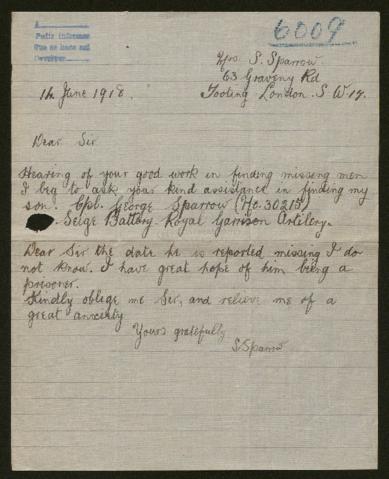 6009
Mrs S. Sparrow
63 Graveny Rd
14 June 1918. Tooting London. S. W 17.
Dear Sir
Hearing of your good work in finding missing men
I beg to ask your kind assistance in finding my
son. Cpl. George Sparrow (No. 30215)
Seige Battery. Royal Garrison Artilery.
Dear Sir the date he is reported missing I do
not know. I have great hope of him being a
prisoner.
Kindly oblege me Sir, and relieve me of a
great anxiety
Yours gratefully
S. Sparrow